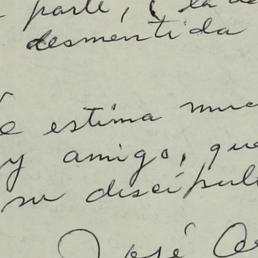 parte, ( la
desmentida
estima
y amigo, que
su discípul
José